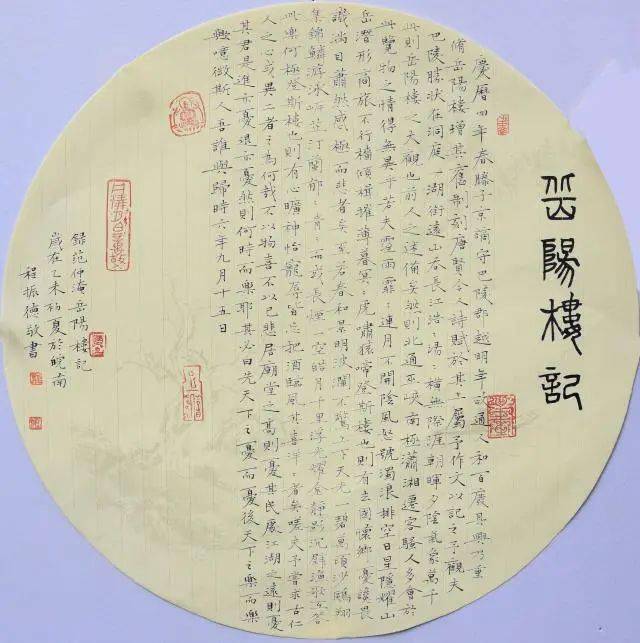 岳陽樓記
慶曆四年春滕子京謫守巴陵郡越明年政通人和百廢具興乃重
脩岳陽樓增其舊制刻唐賢今人詩賦於其上屬予作文以記之予觀夫
巴陵勝狀在洞庭一湖銜遠山吞長江浩〻湯〻橫無際涯朝暉夕陰氣象萬千
此則岳陽樓之大觀也前人之述備矣然則北通巫峽南極瀟湘遷客騷人多會於
此覽物之情得無異乎若夫霪雨霏〻連月不開陰風怒號濁浪排空日星隱耀山
岳潛形商旅不行檣傾楫摧薄暮冥〻虎嘯猿啼登斯樓也則有去國懷鄉憂讒畏
譏滿目蕭然感極而悲者矣至若春和景明波瀾不驚上下天光一碧萬頃沙鷗翔
集錦鱗游泳岸芷汀蘭郁〻青〻而或長煙一空皓月千里浮光耀金靜影沉璧漁歌互答
此樂何極登斯樓也則有心曠神怡寵辱皆忘把酒臨風其喜洋〻者矣嗟夫予嘗求古仁
人之心或異二者之為何哉不以物喜不以己悲居廟堂之高則憂其民處江湖之遠則憂
其君是進亦憂退亦憂然則何時而樂耶其必曰先天下之憂而憂後天下之樂而樂
歟噫微斯人吾誰與歸時六年九月十五日
錄范仲淹岳陽樓記
歲在乙未初夏於皖南
程振德敬書